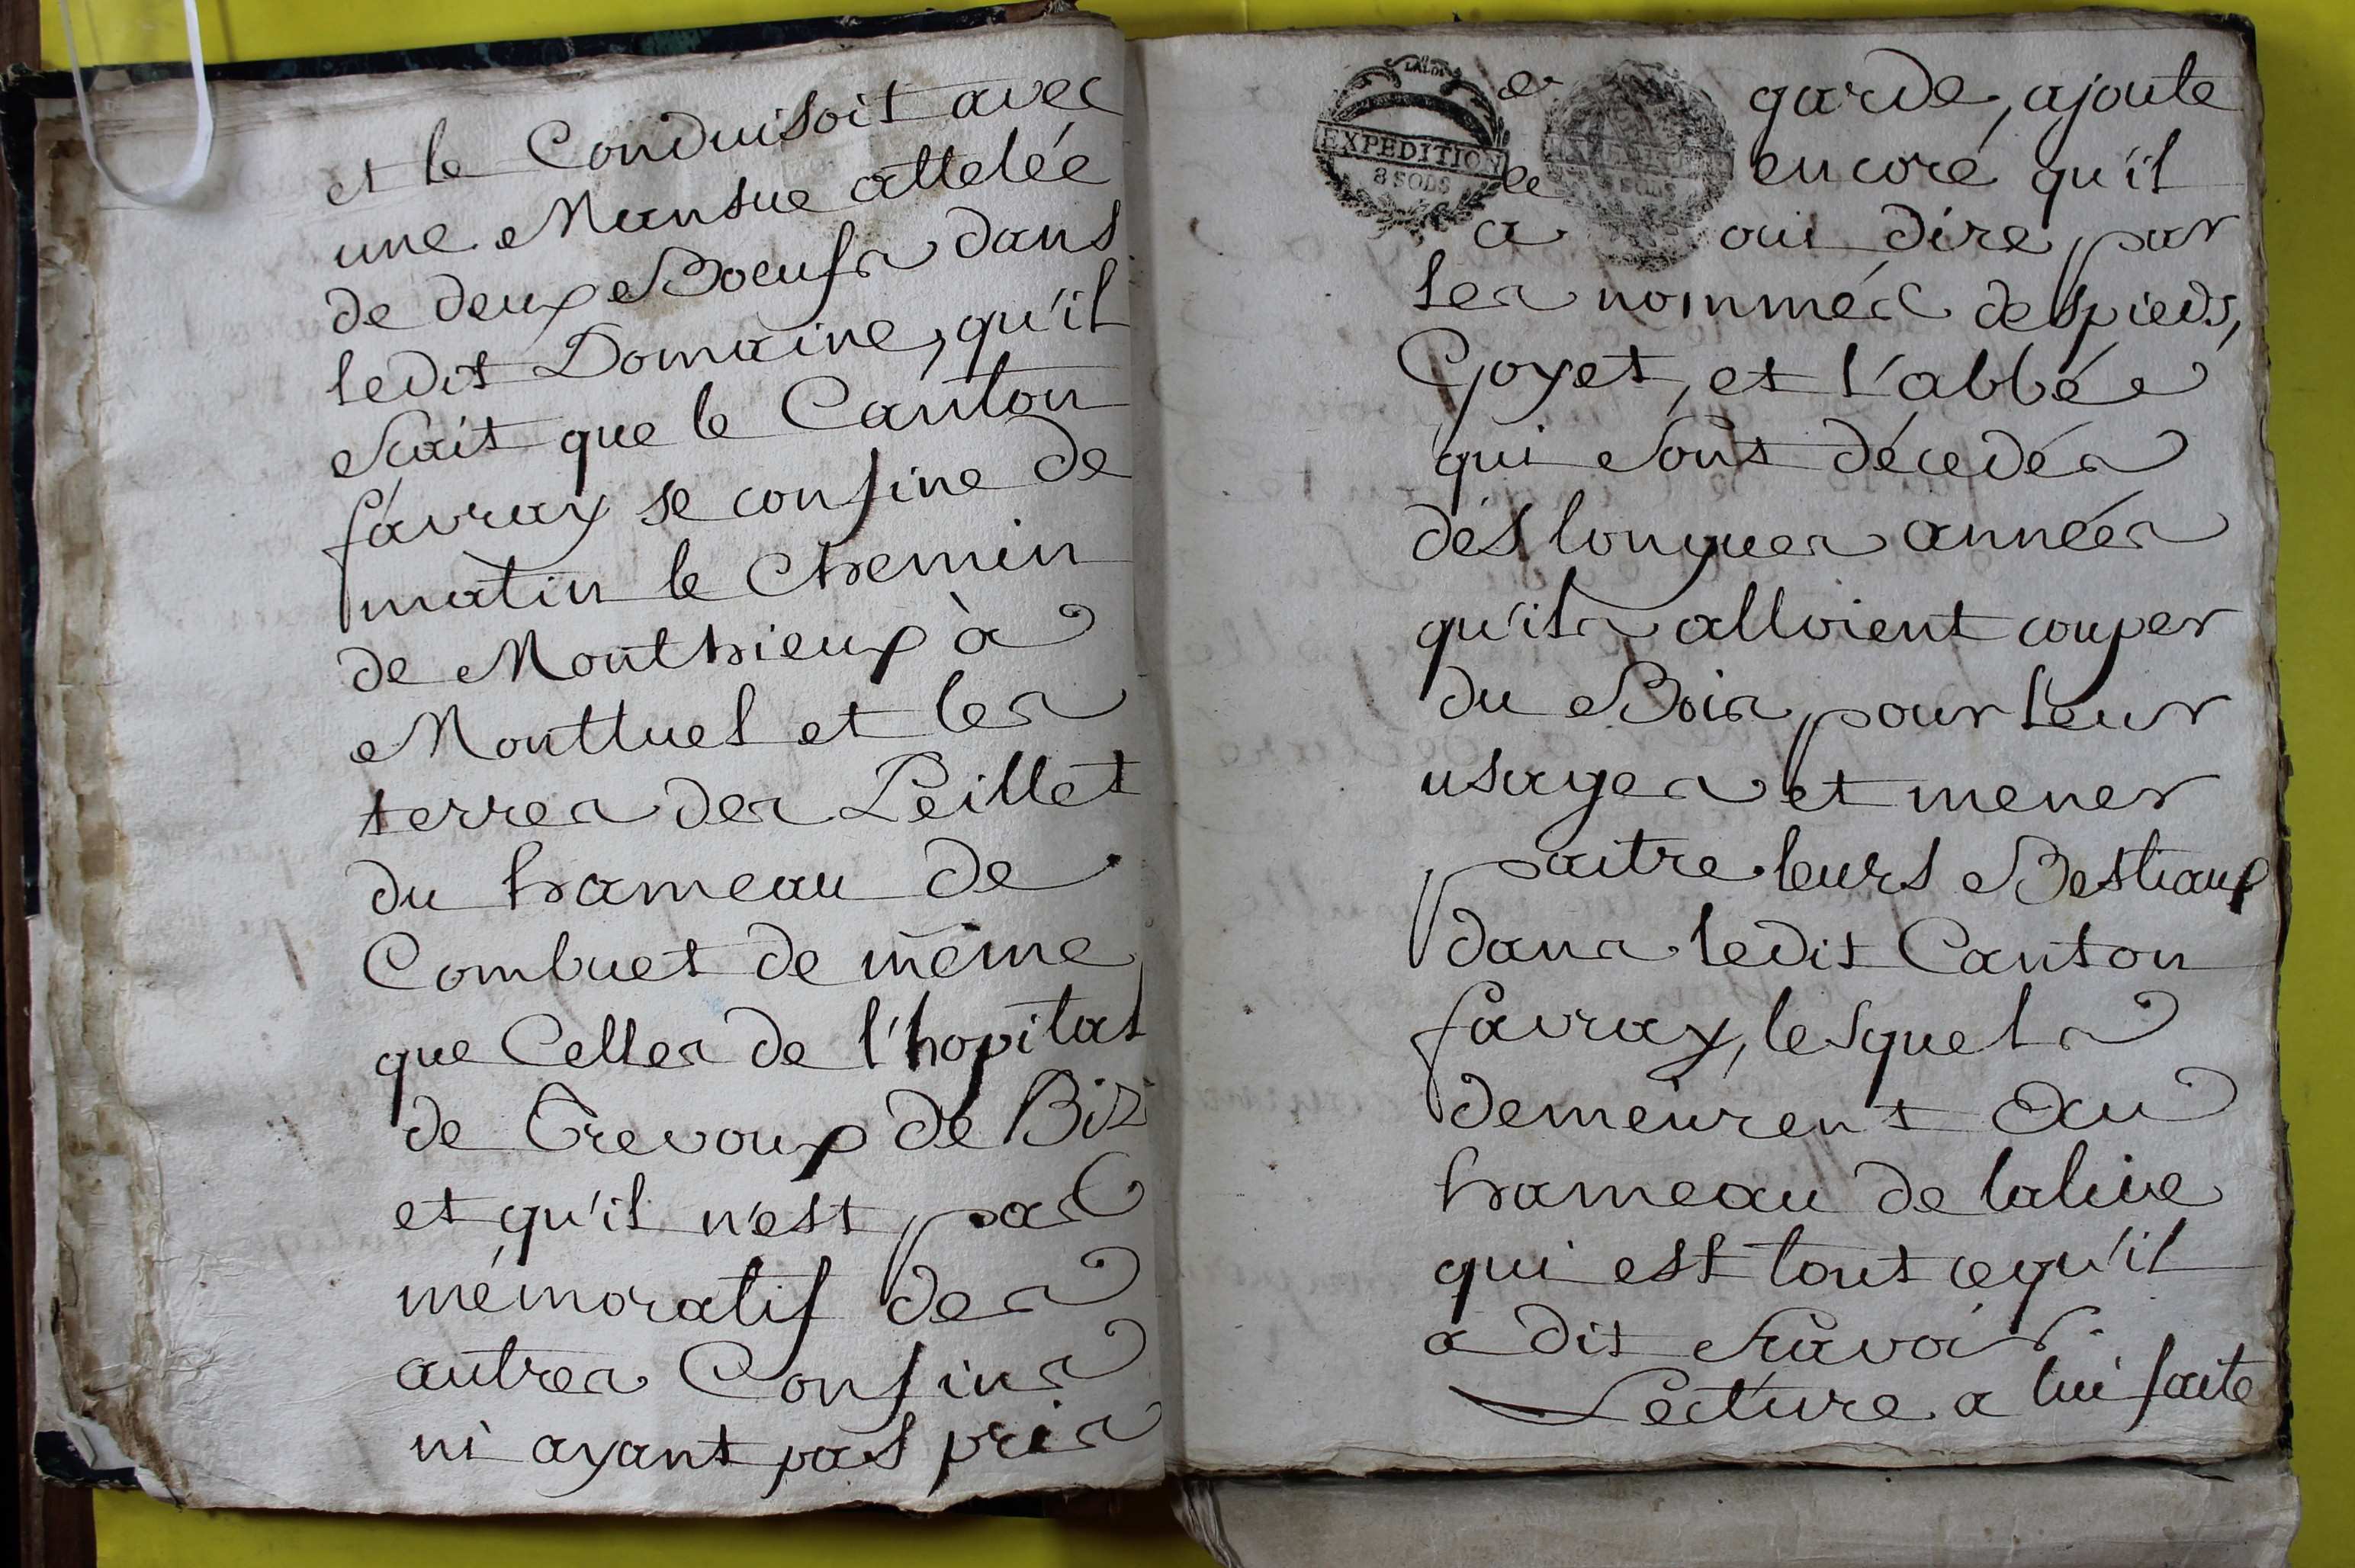 et le Conduisoit avec
une Mansue attelée
de deux Boeufs dans
ledit Domaine, qu'il
scait que le Canton
favray se confine de
matin le Chemin
de Monthieux à
Montluel et les
terres des Peillet
du hameau de
Combuet de même
que Celles de l'hopital
de Trevoux de Biz
et qu'il n'est pas
mémoratif des
autres Confins
ni ayant pas pris
EXPEDITION
8 SODS
garde, ajoute
encoré qu'il
a oui dire par
les nommés despieds,
Goyet, et l'abbé
qui sont décedés
dés longues années
qu'ils alloient couper
du Bois pour leur
usages et mener
paitre leurs Bestiaux
dans ledit Canton
favray, lesquels
demeurent au
hameau de lalive
qui est tout cequ'il
a dit scavoir.
Lecture a lui faite